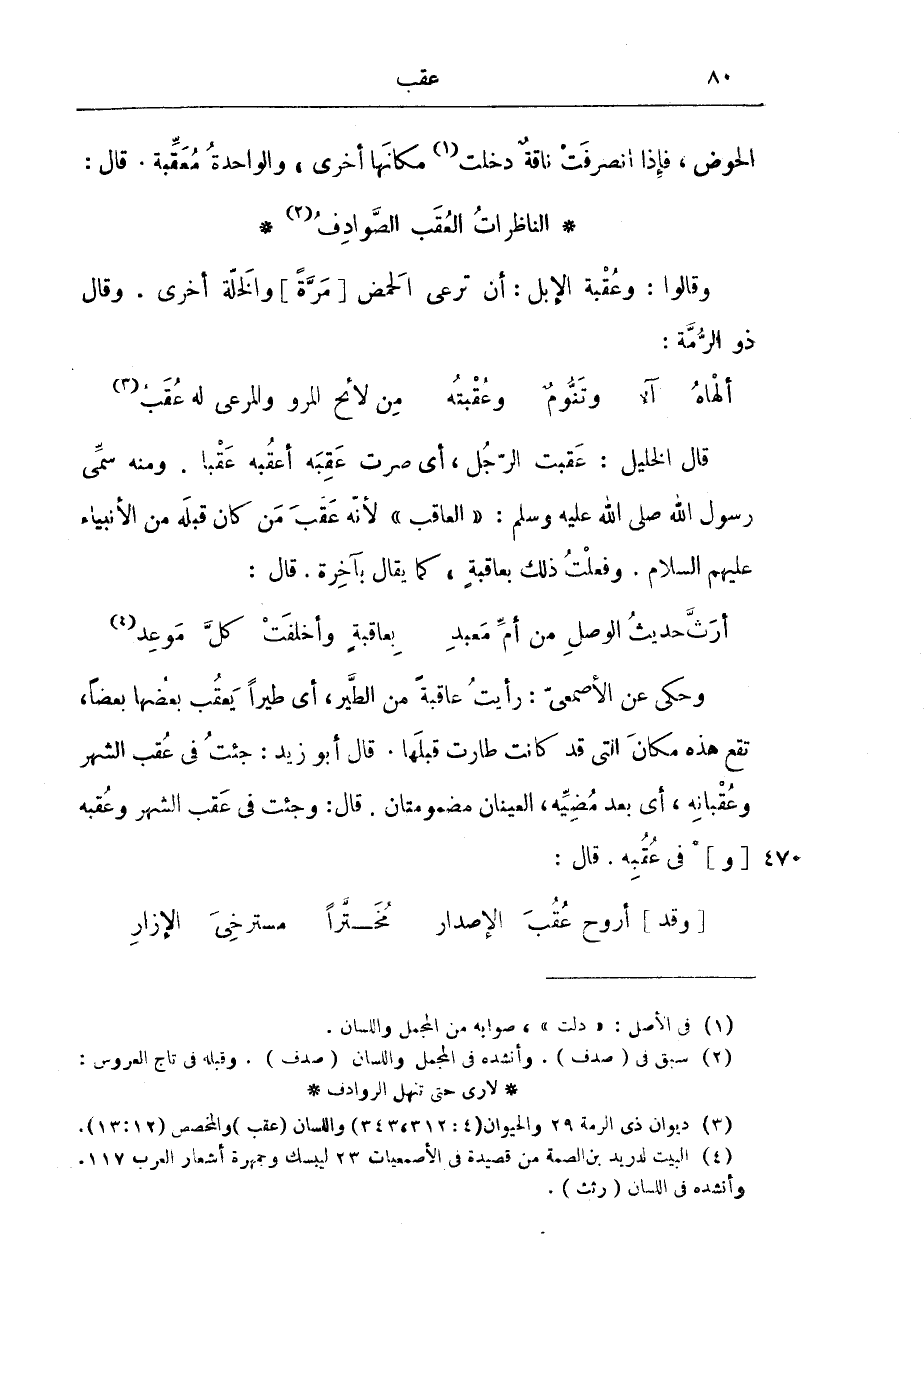 ٨٠ عقب
الحوض ، فإِذا انصرفَتْ ناقةٌ دخلت(١) مكانَها أخرى ، والواحدةُ مُعَقِّبة . قال :
* الناظراتُ العُقَب الصَّوادِفُ(٢) *
وقالوا : وعُقْبة الإبل : أن ترعى الحَمض [ مَرَّةً ] والَخلّة أخرى . وقال
ذو الرُّمَّة :
ألْهاهُ آلا وتَنُّومٌ وعُقْبتُه مِن لائح المرو والمرعى له عُقَبُ(٣)
قال الخليل : عَقبت الرّجُل ، أى صرت عَقِبَه أعقُبه عَقْبا . ومنه سمِّى
رسول الله صلى الله عليه وسلم : « العاقب » لأنّه عَقَبَ مَن كان قبلَه من الأنبياء
عليهم السلام . وفعلْتُ ذلك بعاقبةٍ ، كما يقال بآخِرة . قال :
أرَثَّ حديثُ الوصلِ من أمِّ مَعبدِ بِعاقبةٍ وأخلفَتْ كلَّ مَوعِد(٤)
وحكى عن الأصمعىّ : رأيتُ عاقبةً من الطَّير ، أى طيراً يَعقُب بعْضها بعضاً،
تقع هذه مكانَ التى قد كانت طارت قبلَها . قال أبو زيد : جئتُ فى عُقب الشهر
وعُقْبانِه ، أى بعد مُضِيِّه، العينان مضمومتان . قال: وجئت فى عَقب الشهر وعُقبه
٤٧٠ [ و ] * فى عُقُبِه . قال :
[ وقد ] أروح عُقُبَ الإصدار مُخَــتَّراً مسترخِىَ الإزارِ
(١) فى الأصل : « دلت » ، صوابه من المجمل واللسان .
(٢) سبق فى ( صدف ) . وأنشده فى المجمل واللسان ( صدف ) . وقبله فى تاج العروس :
* لارى حتى تنهل الروادف *
(٣) ديوان ذى الرمة ٢٩ والحيوان(٤ : ٣١٢،٣٤٣) واللسان (عقب )والمخصص (١٢ : ١٣).
(٤) البيت لدريد بن الصمة من قصيدة فى الأصمعيات ٢٣ ليبسك وجمهرة أشعار العرب ١١٧ .
وأنشده فى اللسان ( رثث ) .